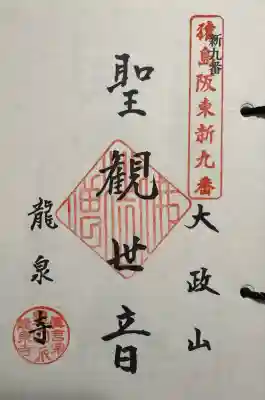 新九番
猿島阪東新九番
大政山
聖観世音
龍泉寺